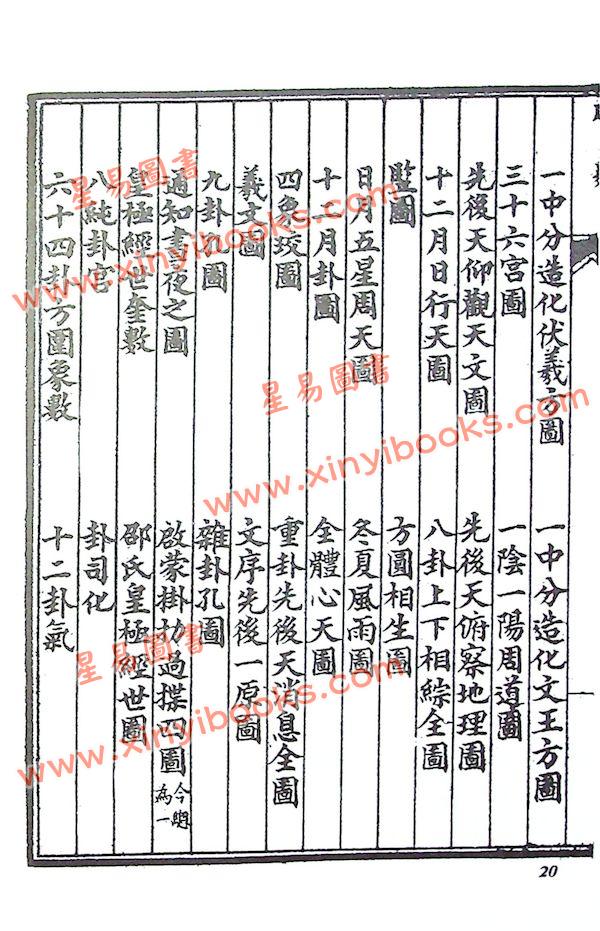 一中分造化伏羲方圖
一中分造化文王方圖
三十六宮圖
一陰一陽周道圖
先後天仰觀天文圖
先後天俯察地理圖
十二月日行天圖
八卦上下相綜全圖
監圖
方圓相生圖
日月五星周天圖
冬夏風雨圖
十二月卦圖
全體心天圖
四象圖
重卦先後天消息全圖
羲文圖
文序先後一原圖
九卦圖
雜卦孔圖
通知晝夜之圖
啟蒙掛扐過揲四圖 今總為一
皇極經世奎數
邵氏皇極經世圖
八純卦宮
卦司化
六十四卦方圓象數
十二卦氣
20
星易圖書
www.xinyibooks.com
星易圖書
www.xinyibooks.com
星易圖書
www.xinyibooks.com